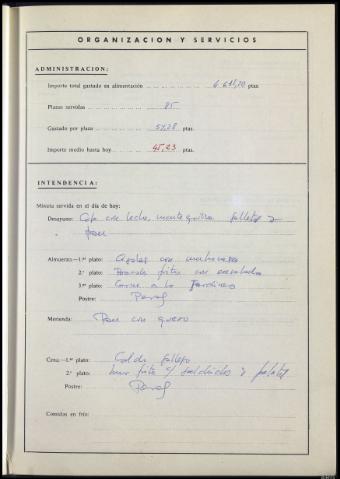 ORGANIZACION Y SERVICIOS
ADMINISTRACION:
Importe total gastado en alimentación ptas.
Plazas servidas 85
Gastado por plaza ptas.
Importe medio hasta hoy 45,23 ptas.
INTENDENCIA:
Minuta servida en el día de hoy:
Desayuno: Café con leche, mantequilla galletas y
pan
Almuerzo.—1.er plato: con mahonesa
2.º plato: frita con ensalada
3.er plato: Carne a la Jardinera
Postre: Peras
Merienda: Pan con queso
Cena.—1.er plato: Caldo gallego
2.º plato: frita y salchichas y patatas
Postre: Peras
Comidas en frío: